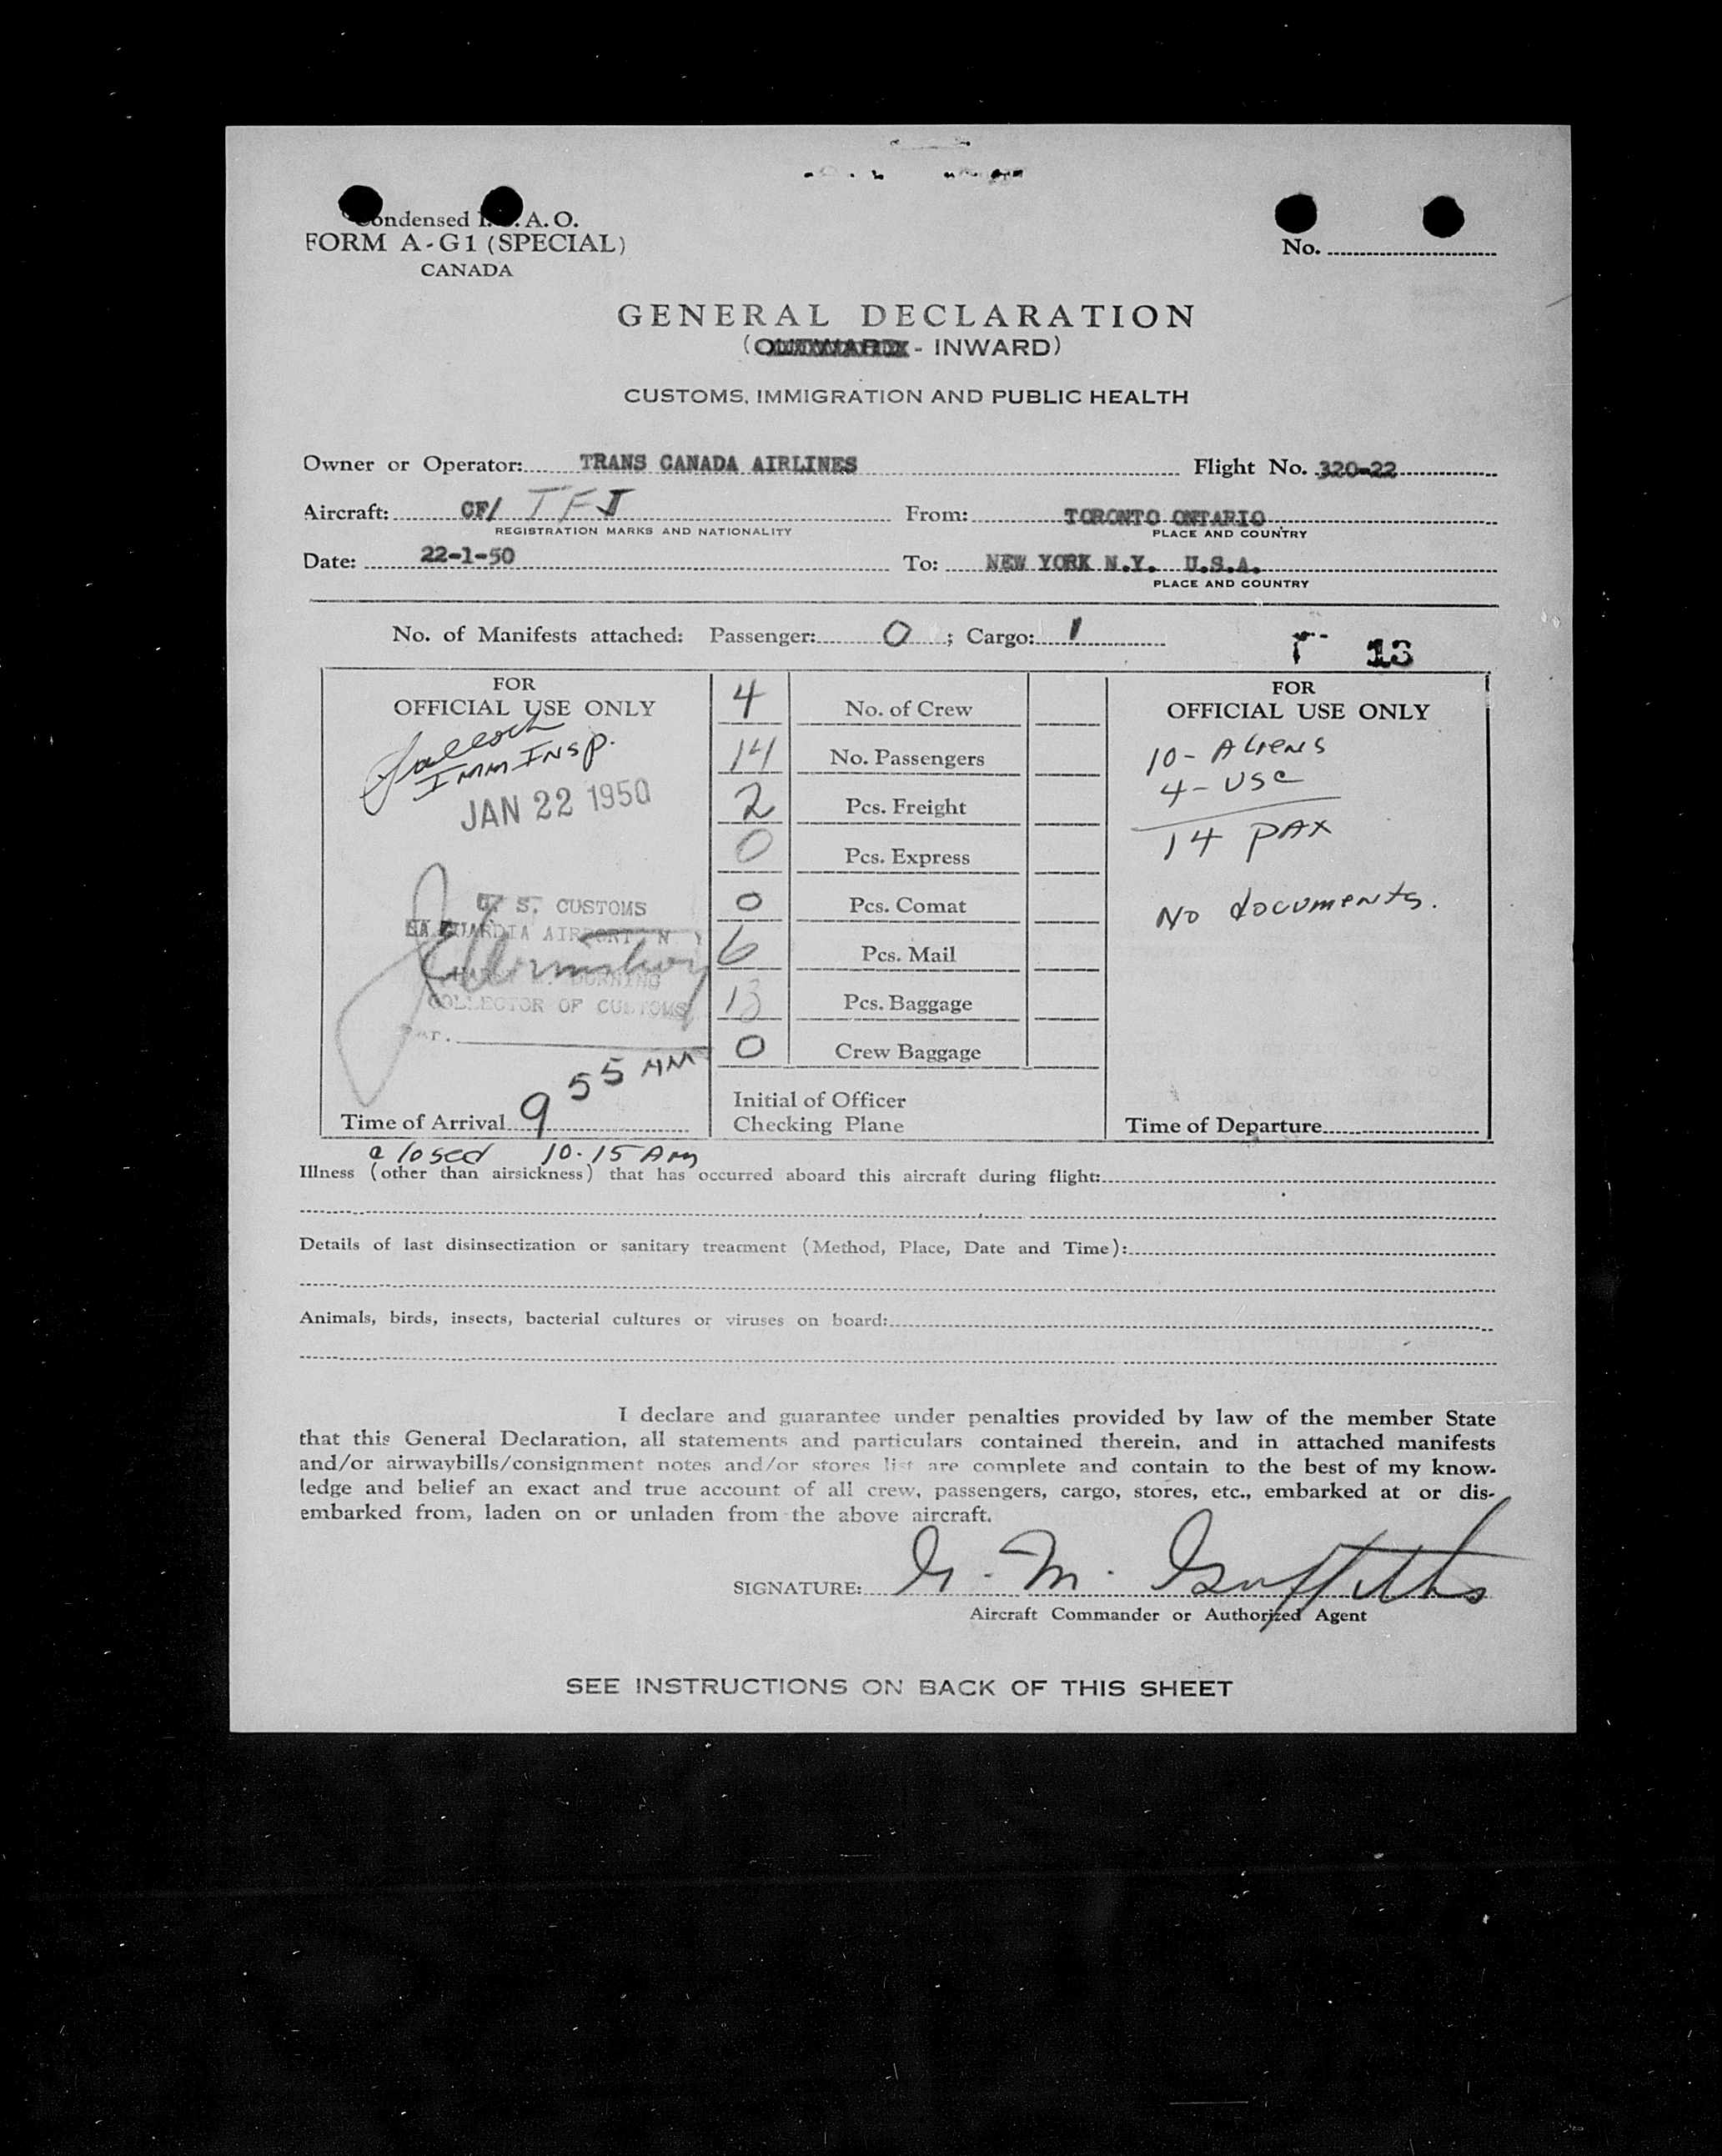 Condensed I. . A. O.
FORM A-G1 (SPECIAL)
CANADA
No.
GENERAL DECLARATION
(OUTWARD - INWARD)
CUSTOMS, IMMIGRATION AND PUBLIC HEALTH
Owner or Operator: TRANS CANADA AIRLINES Flight No. 320-22
Aircraft: CF/ TFJ From: TORONTO ONTARIO
REGISTRATION MARKS AND NATIONALITY PLACE AND COUNTRY
Date: 22-1-50 To: NEW YORK N.Y. U.S.A.
PLACE AND COUNTRY
No. of Manifests attached: Passenger: 0 ; Cargo: 1
13
FOR
OFFICIAL USE ONLY
Imm Insp.
JAN 22 1950
U. S. CUSTOMS
LA GUARDIA AIRPORT, N. Y
DURNING
COLLECTOR OF CUSTOMS
Time of Arrival 9 55 AM
closed 10.15 Am
4 No. of Crew
14 No. Passengers
2 Pcs. Freight
0 Pcs. Express
0 Pcs. Comat
6 Pcs. Mail
13 Pcs. Baggage
0 Crew Baggage
Initial of Officer
Checking Plane
FOR
OFFICIAL USE ONLY
10 - Aliens
4 - USC
14 PAX
No documents.
Time of Departure
Illness (other than airsickness) that has occurred aboard this aircraft during flight:
Details of last disinsectization or sanitary treatment (Method, Place, Date and Time):
Animals, birds, insects, bacterial cultures or viruses on board:
I declare and guarantee under penalties provided by law of the member State
that this General Declaration, all statements and particulars contained therein, and in attached manifests
and/or airwaybills/consignment notes and/or stores list are complete and contain to the best of my know-
ledge and belief an exact and true account of all crew, passengers, cargo, stores, etc., embarked at or dis-
embarked from, laden on or unladen from the above aircraft.
SIGNATURE: G. M. Griffiths
Aircraft Commander or Authorized Agent
SEE INSTRUCTIONS ON BACK OF THIS SHEET